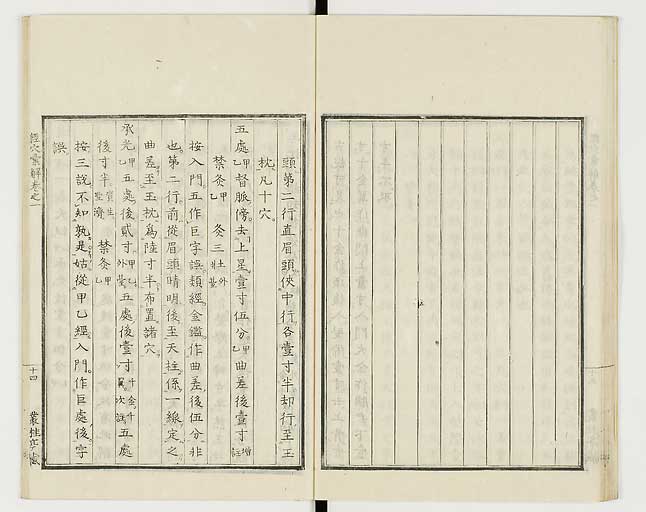 頭第二行直眉頭俠中行各壹寸半却行至玉
枕凡十穴
五處甲乙督脈傍去上星壹寸伍分甲乙曲差後壹寸
禁灸甲乙灸三土外壯臺
按入門五作巨字誤類經金鑑作曲差後伍分非
也第二行前從眉頭睛明後至天柱係一線定之
曲差至玉枕爲陸寸半布置諸穴
承光甲乙五處後貳寸甲乙外臺五處後壹寸千金千翼次註五處
後寸半資生聖濟禁灸甲乙
按三說不知孰是姑從甲乙經入門作巨處後字
誤
經穴彙解卷之一
十四
叢桂亭藏